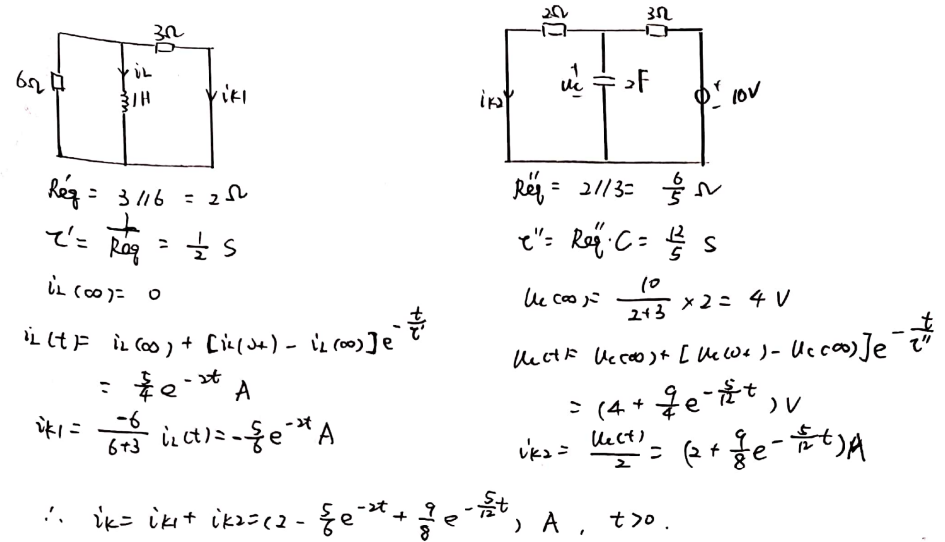 3Ω
6Ω
iL
1H
ik1
2Ω
3Ω
ik2
+
uc
-
2F
+
-
10V
Req' = 3//6 = 2Ω
τ' = 1/Req = 1/2 S
iL(∞) = 0
iL(t) = iL(∞) + [iL(0+) - iL(∞)]e^{-t/τ'}
= 5/4 e^{-2t} A
ik1 = -6/(6+3) iL(t) = -5/6 e^{-2t} A
Req'' = 2//3 = 6/5 Ω
τ'' = Req''·C = 12/5 S
uc(∞) = 10/(2+3) × 2 = 4 V
uc(t) = uc(∞) + [uc(0+) - uc(∞)]e^{-t/τ''}
= (4 + 9/4 e^{-5/12 t}) V
ik2 = uc(t)/2 = (2 + 9/8 e^{-5/12 t}) A
∴ ik = ik1 + ik2 = (2 - 5/6 e^{-2t} + 9/8 e^{-5/12 t}) A, t>0.